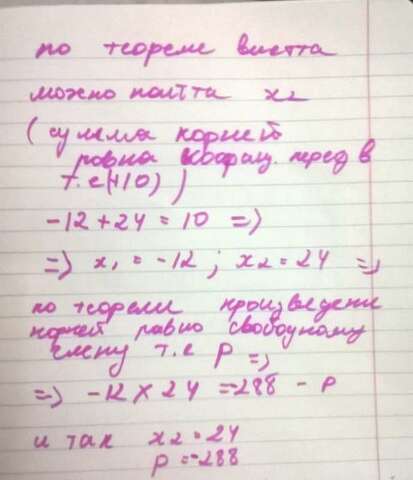 по теореме виетта
можно пойтта x₂
(сумма корней
равна коэфиц. перед в
т.е(+10))
-12+24=10 =>
=> x₁ = -12 ; x₂ = 24 =>
по теореми произведени
корней равно свободному
члену т.е p =>
=> -12 × 24 = -288 - p
и так x₂ = 24
p = -288